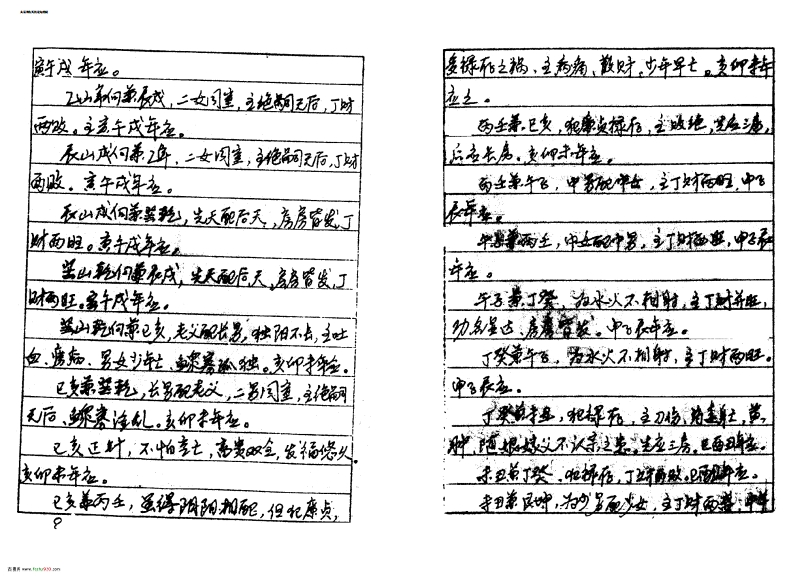 寅午戌年应。
乙山辛向兼辰戌，二女同室，主绝嗣无后，丁财
两败。主寅午戌年应。
辰山戌向兼乙辛，二女同室，主绝嗣无后，丁财
两败。寅午戌年应。
辰山戌向兼巽乾，先天配后天，房房皆发，丁
财两旺。寅午戌年应。
巽山乾向兼辰戌，先天配后天，房房皆发，丁
财两旺。寅午戌年应。
巽山乾向兼巳亥，老父配长男，独阳不长，主吐
血、痨病、男女少年亡、鳏寡孤独。亥卯未年应。
巳亥兼巽乾，长男配老父，二男同室，主绝嗣
无后、鳏寡淫乱。亥卯未年应。
巳亥正针，不怕空亡，富贵双全，发福悠久。
亥卯未年应。
巳亥兼丙壬，虽得阴阳相配，但犯廉贞，
9
多禄存之祸、主病痛、散财、少年早亡。亥卯未年
应之。
丙壬兼巳亥，犯廉贞禄存，主败绝，先应三房，
后应长房。亥卯未年应。
丙壬兼午子，中男配中女，主丁财两旺，申子
辰年应。
午子兼丙壬，中女配中男，主丁财两旺，申子辰
年应。
午子兼丁癸，为水火不相射，主丁财两旺，
功名显达、房房皆发。申子辰年应。
丁癸兼午子，为水火不相射，主丁财两旺。
申子辰应。
丁癸兼未丑，犯禄存，主刀伤、黄
肿，随娘嫁父不认亲之患。先应三房。巳酉丑年应。
未丑兼丁癸，犯禄存，丁财两败。巳酉丑年应。
未丑兼艮坤，为少男配少女，主丁财两旺，
www.fozhu920.com